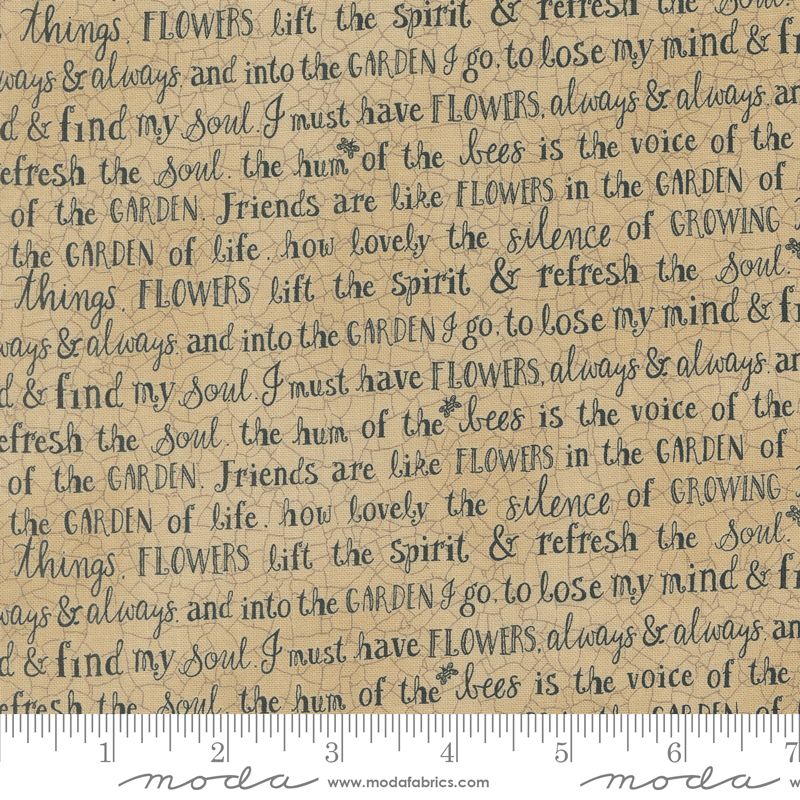 things. FLOWERS lift the spirit & refresh the soul.
always & always. and into the GARDEN I go. to lose my mind &
& find my soul. I must have FLOWERS, always & always.
refresh the soul. the hum of the bees is the voice of the
of the GARDEN. Friends are like FLOWERS in the GARDEN of
the GARDEN of life. how lovely the silence of GROWING
things. FLOWERS lift the spirit & refresh the soul.
ways & always. and into the GARDEN I go. to lose my mind &
d & find my soul. I must have FLOWERS, always & always. an
efresh the soul. the hum of the bees is the voice of the
of the GARDEN. Friends are like FLOWERS in the GARDEN of
the GARDEN of life. how lovely the silence of GROWING
things. FLOWERS lift the spirit & refresh the soul.
ways & always. and into the GARDEN I go. to lose my mind &
d & find my soul. I must have FLOWERS, always & always. an
efresh the soul. the hum of the bees is the voice of the
1 2 3 4 5 6 7
moda www.modafabrics.com moda